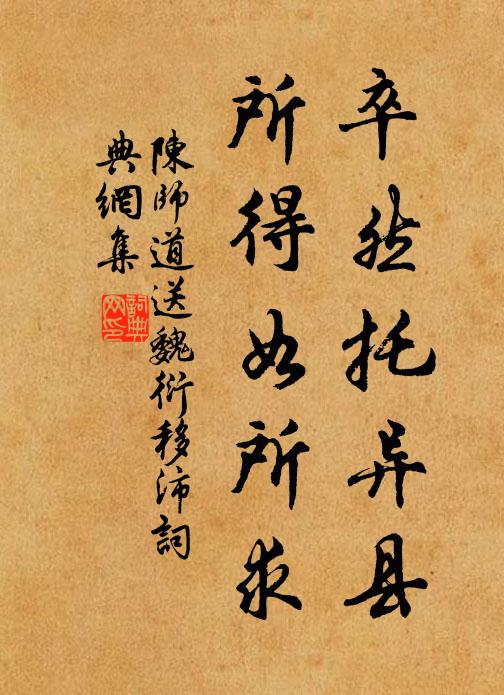 卒然托异县
所得如所求
陳師道送魏衍移沛詞
典網集
詞典网印